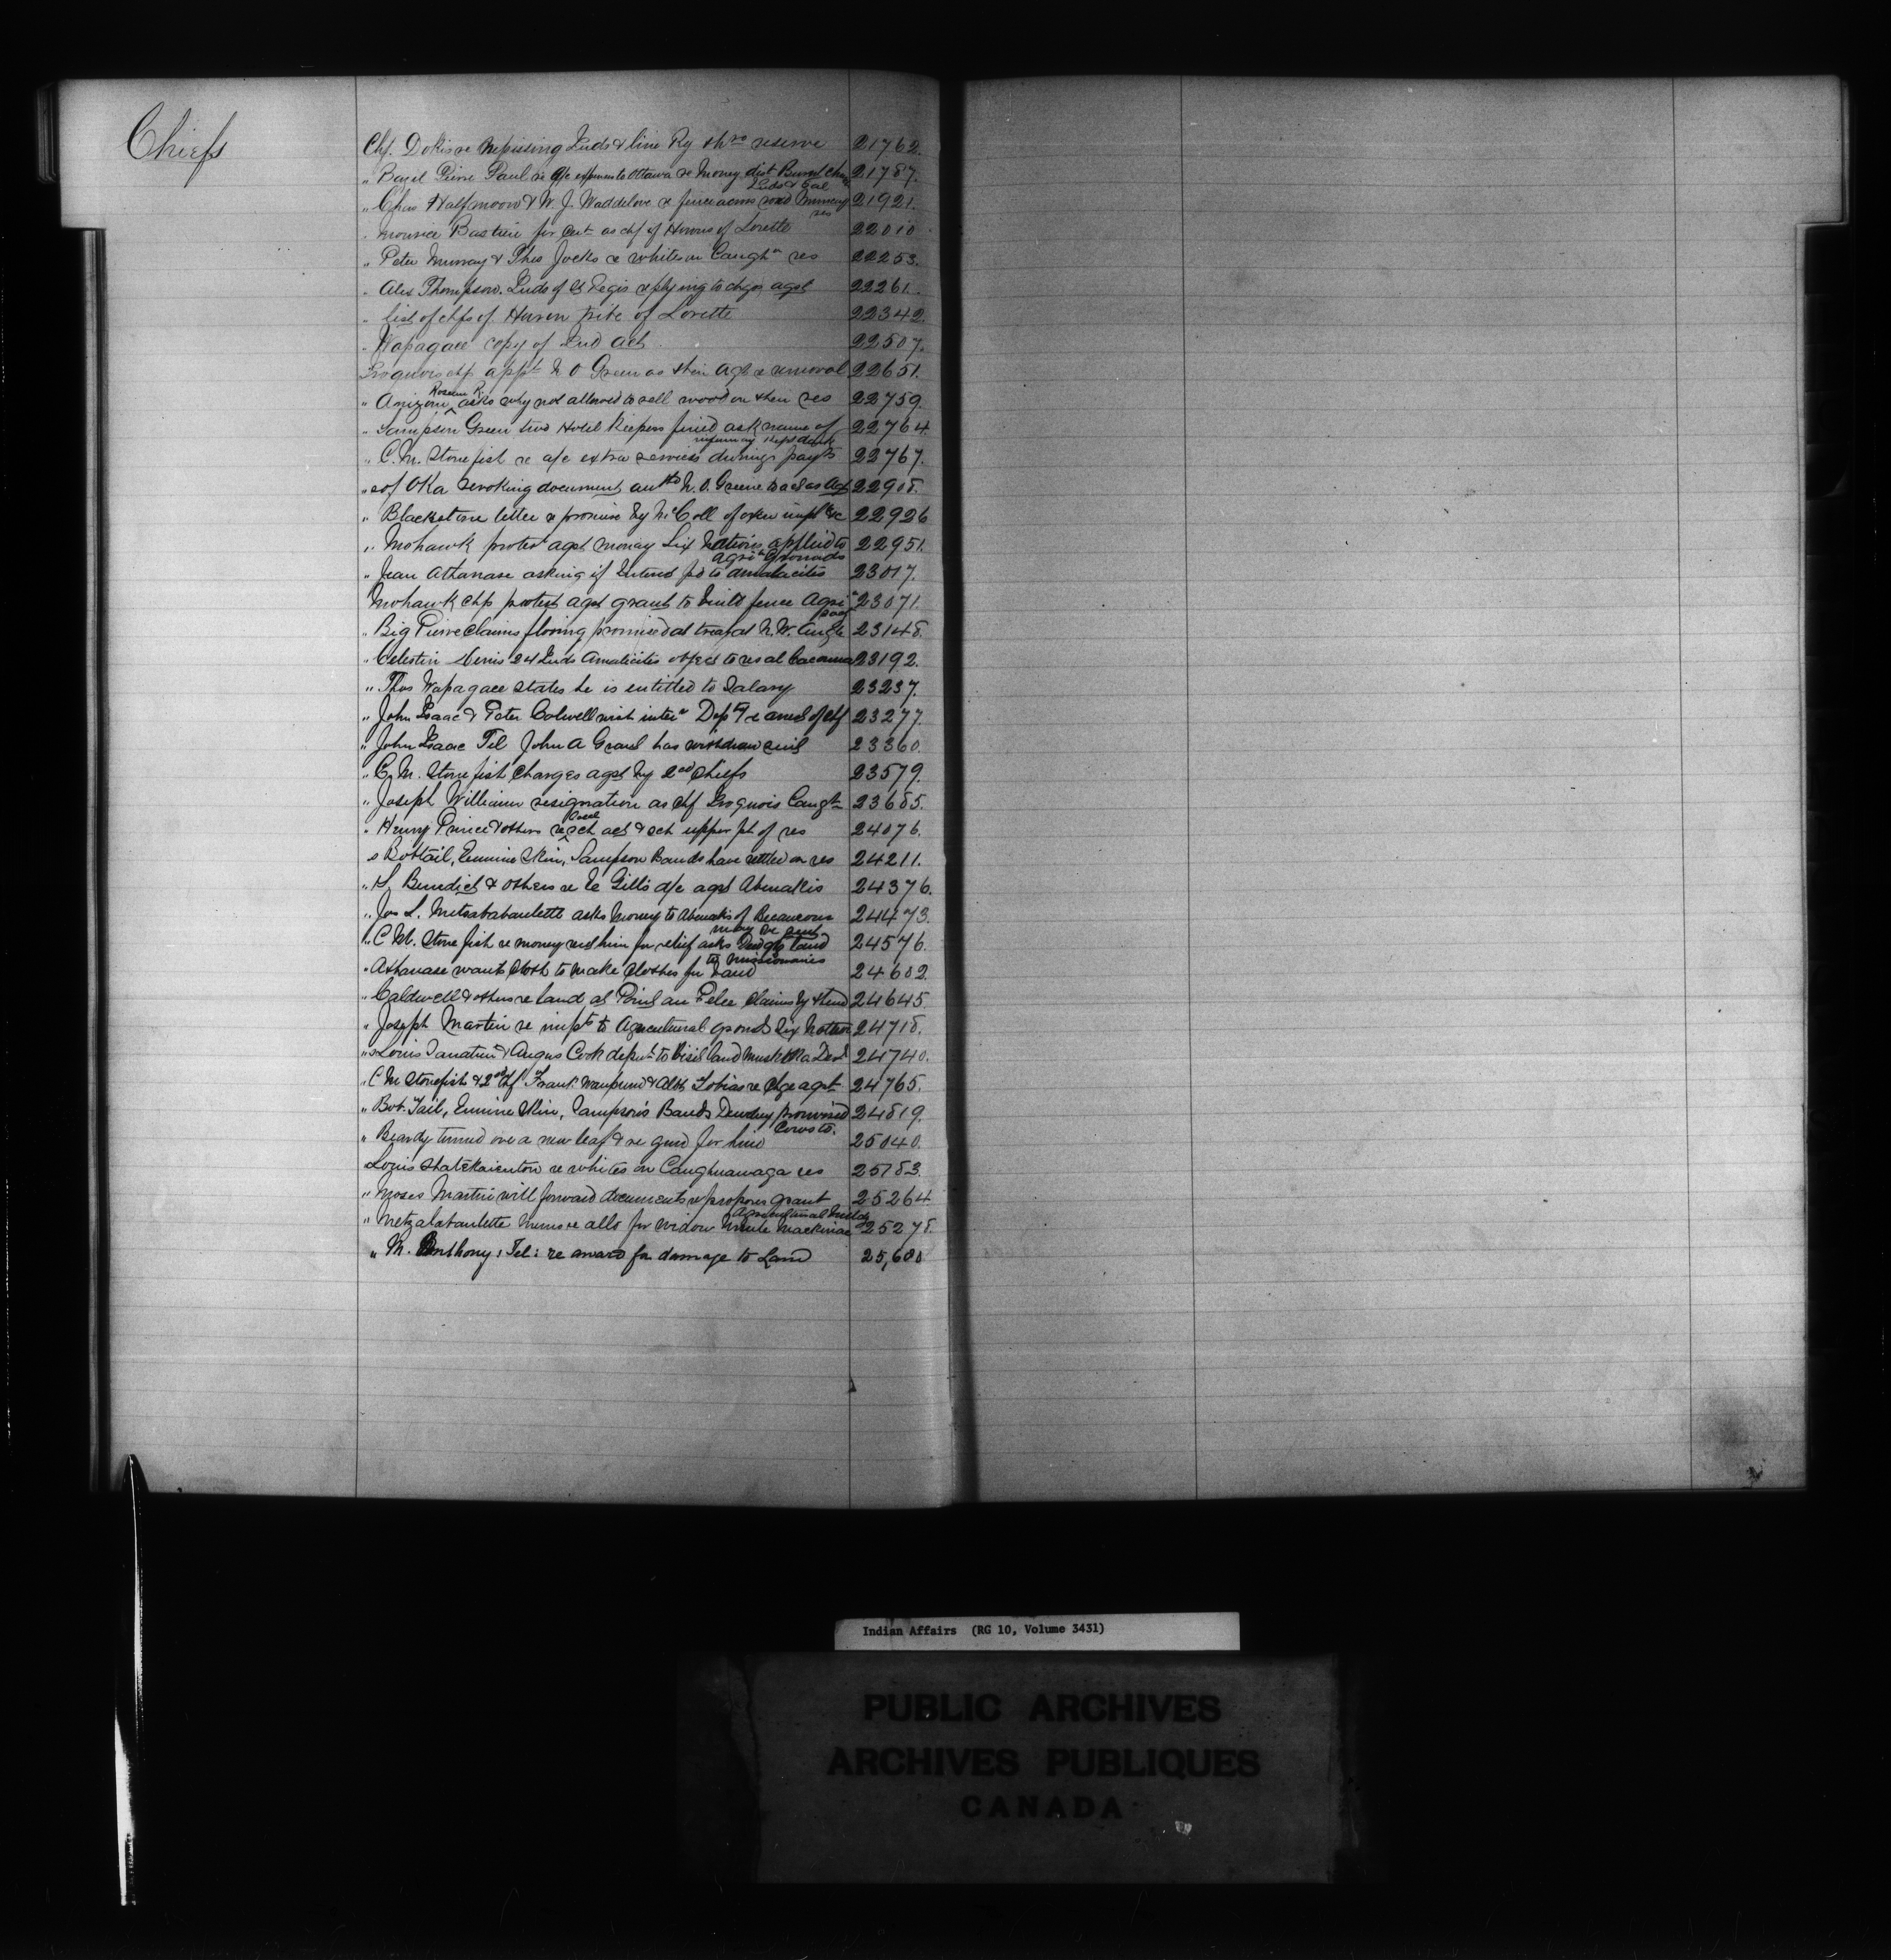 Chiefs
Chf. Dokis re Nepissing Inds & line Ry thro reserve 21762.
" Bazil Pierre Paul re a/c expenses to Ottawa re Money dist Burnt Church 21787.
Inds & Eel
" Chas Halfmoon & W. J. Waddilove re fence across road Muncey 21921.
res
" Maurice Bastien for Cert as chf of Hurons of Lorette 22010
" Peter Murray & Thos Jocks re whites on Caugha res 22253.
" Alex Thompson. Inds of St Regis replying to chges agst 22261.
" list of chfs of Huron tribe of Lorette 22342.
" Wapagace copy of Ind Act 22507.
Iroquois chfs appt N O Green as their Agt & removal 22651.
Roseau R.
" asks why not allowed to sell wood on their res 22759.
" Sampson Green two Hotel Keepers fined ask name of 22764.
" C. M. Stonefish re a/c extra services during payts 22767.
" s of Oka revoking document auth N. O. Greene to act as Agt 22908.
" Blackstone letter re promise by McColl of oxen impts &c 22926
" Mohawk protest agst money Six Nations applied to 22951.
agril Grounds
" Jean Athanase asking if Interest pd to Amalacites 23017.
Mohawk chfs protest agst grant to build fence Agri 23071.
" Big Pierre claims flooring promised at treaty at N. W. Angle 23148.
" Celestin 24 Inds Amalicites object to res at Cacouna 23192.
" Thos Wapagace states he is entitled to Salary 23237.
" John Isaac & Peter Colwell wish Dept re of chf 23277.
" John Isaac Tel John A Grant has withdrawn suit 23360.
" C. M. Stonefish charges agst by 2nd Chiefs 23579.
" Joseph Williams resignation as chf Iroquois Caugh 23685.
" Henry Prince & others re sch act & sch upper pt of res 24076.
s Bobtail, Ermine Skin, Sampson Bands have settled on res 24211.
" Benedict & others re Gill's a/c agst Abenakis 24376.
" Jos L. asks Money to Abenakis of Becancour 24473.
may be sent
" C M. Stonefish re money for relief asks land 24576.
to Missionaries
" Athanase wants cloth to make clothes for band 24602.
" Caldwell & others re land at Point au Pelee claims by them 24645.
" Joseph Martin re impts to Agricultural grounds Six Nations 24718.
" s Louis & Angus Cook to visit land Muskoka Dist 24740.
" C M Stonefish & 2nd chf Frank & Tobias re chge agst 24765.
" Bob Tail, Ermine Skin, Sampson's Bands Dewdney promised 24819.
Cows to.
" Beardy turned over a new leaf & re gun for him 25040.
Louis Shatekaienton re whites on Caughnawaga res 25183.
" Moses Martin will forward documents re proposes grant 25264
Agricultural
" re allo for widow Mackinac 25278.
" M. Anthony: Tel: re award for damage to Land 25,600
Indian Affairs (RG 10, Volume 3431)
PUBLIC ARCHIVES
ARCHIVES PUBLIQUES
CANADA